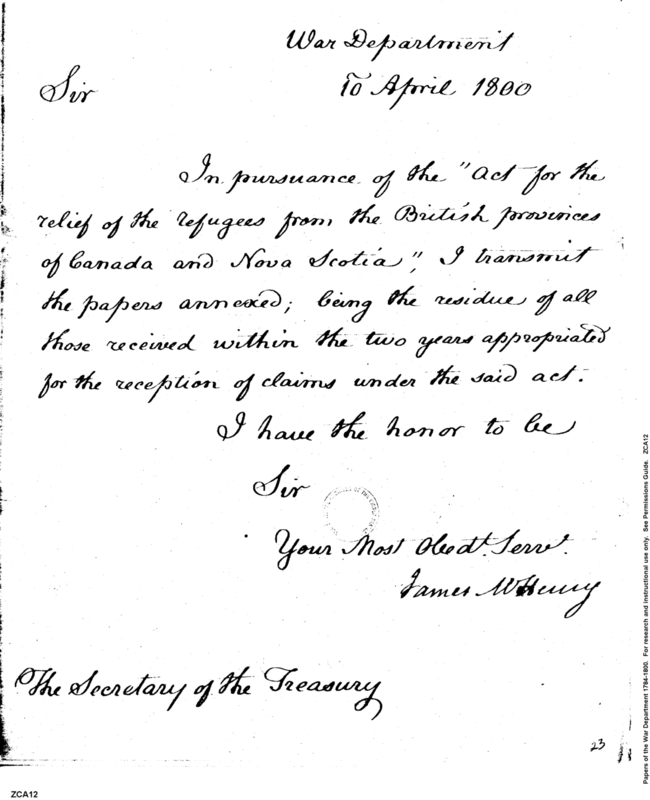 War Department
10 April 1800
Sir
In pursuance of the "Act for the
relief of the refugees from the British provinces
of Canada and Nova Scotia", I transmit
the papers annexed; being the residue of all
those received within the two years appropriated
for the reception of claims under the said act.
I have the honor to be
Sir
Your Most Obedt. Servt.
James McHenry
The Secretary of the Treasury
23
ZCA12
Papers of the War Department 1784-1800. For research and instructional use only. See Permissions Guide. ZCA12